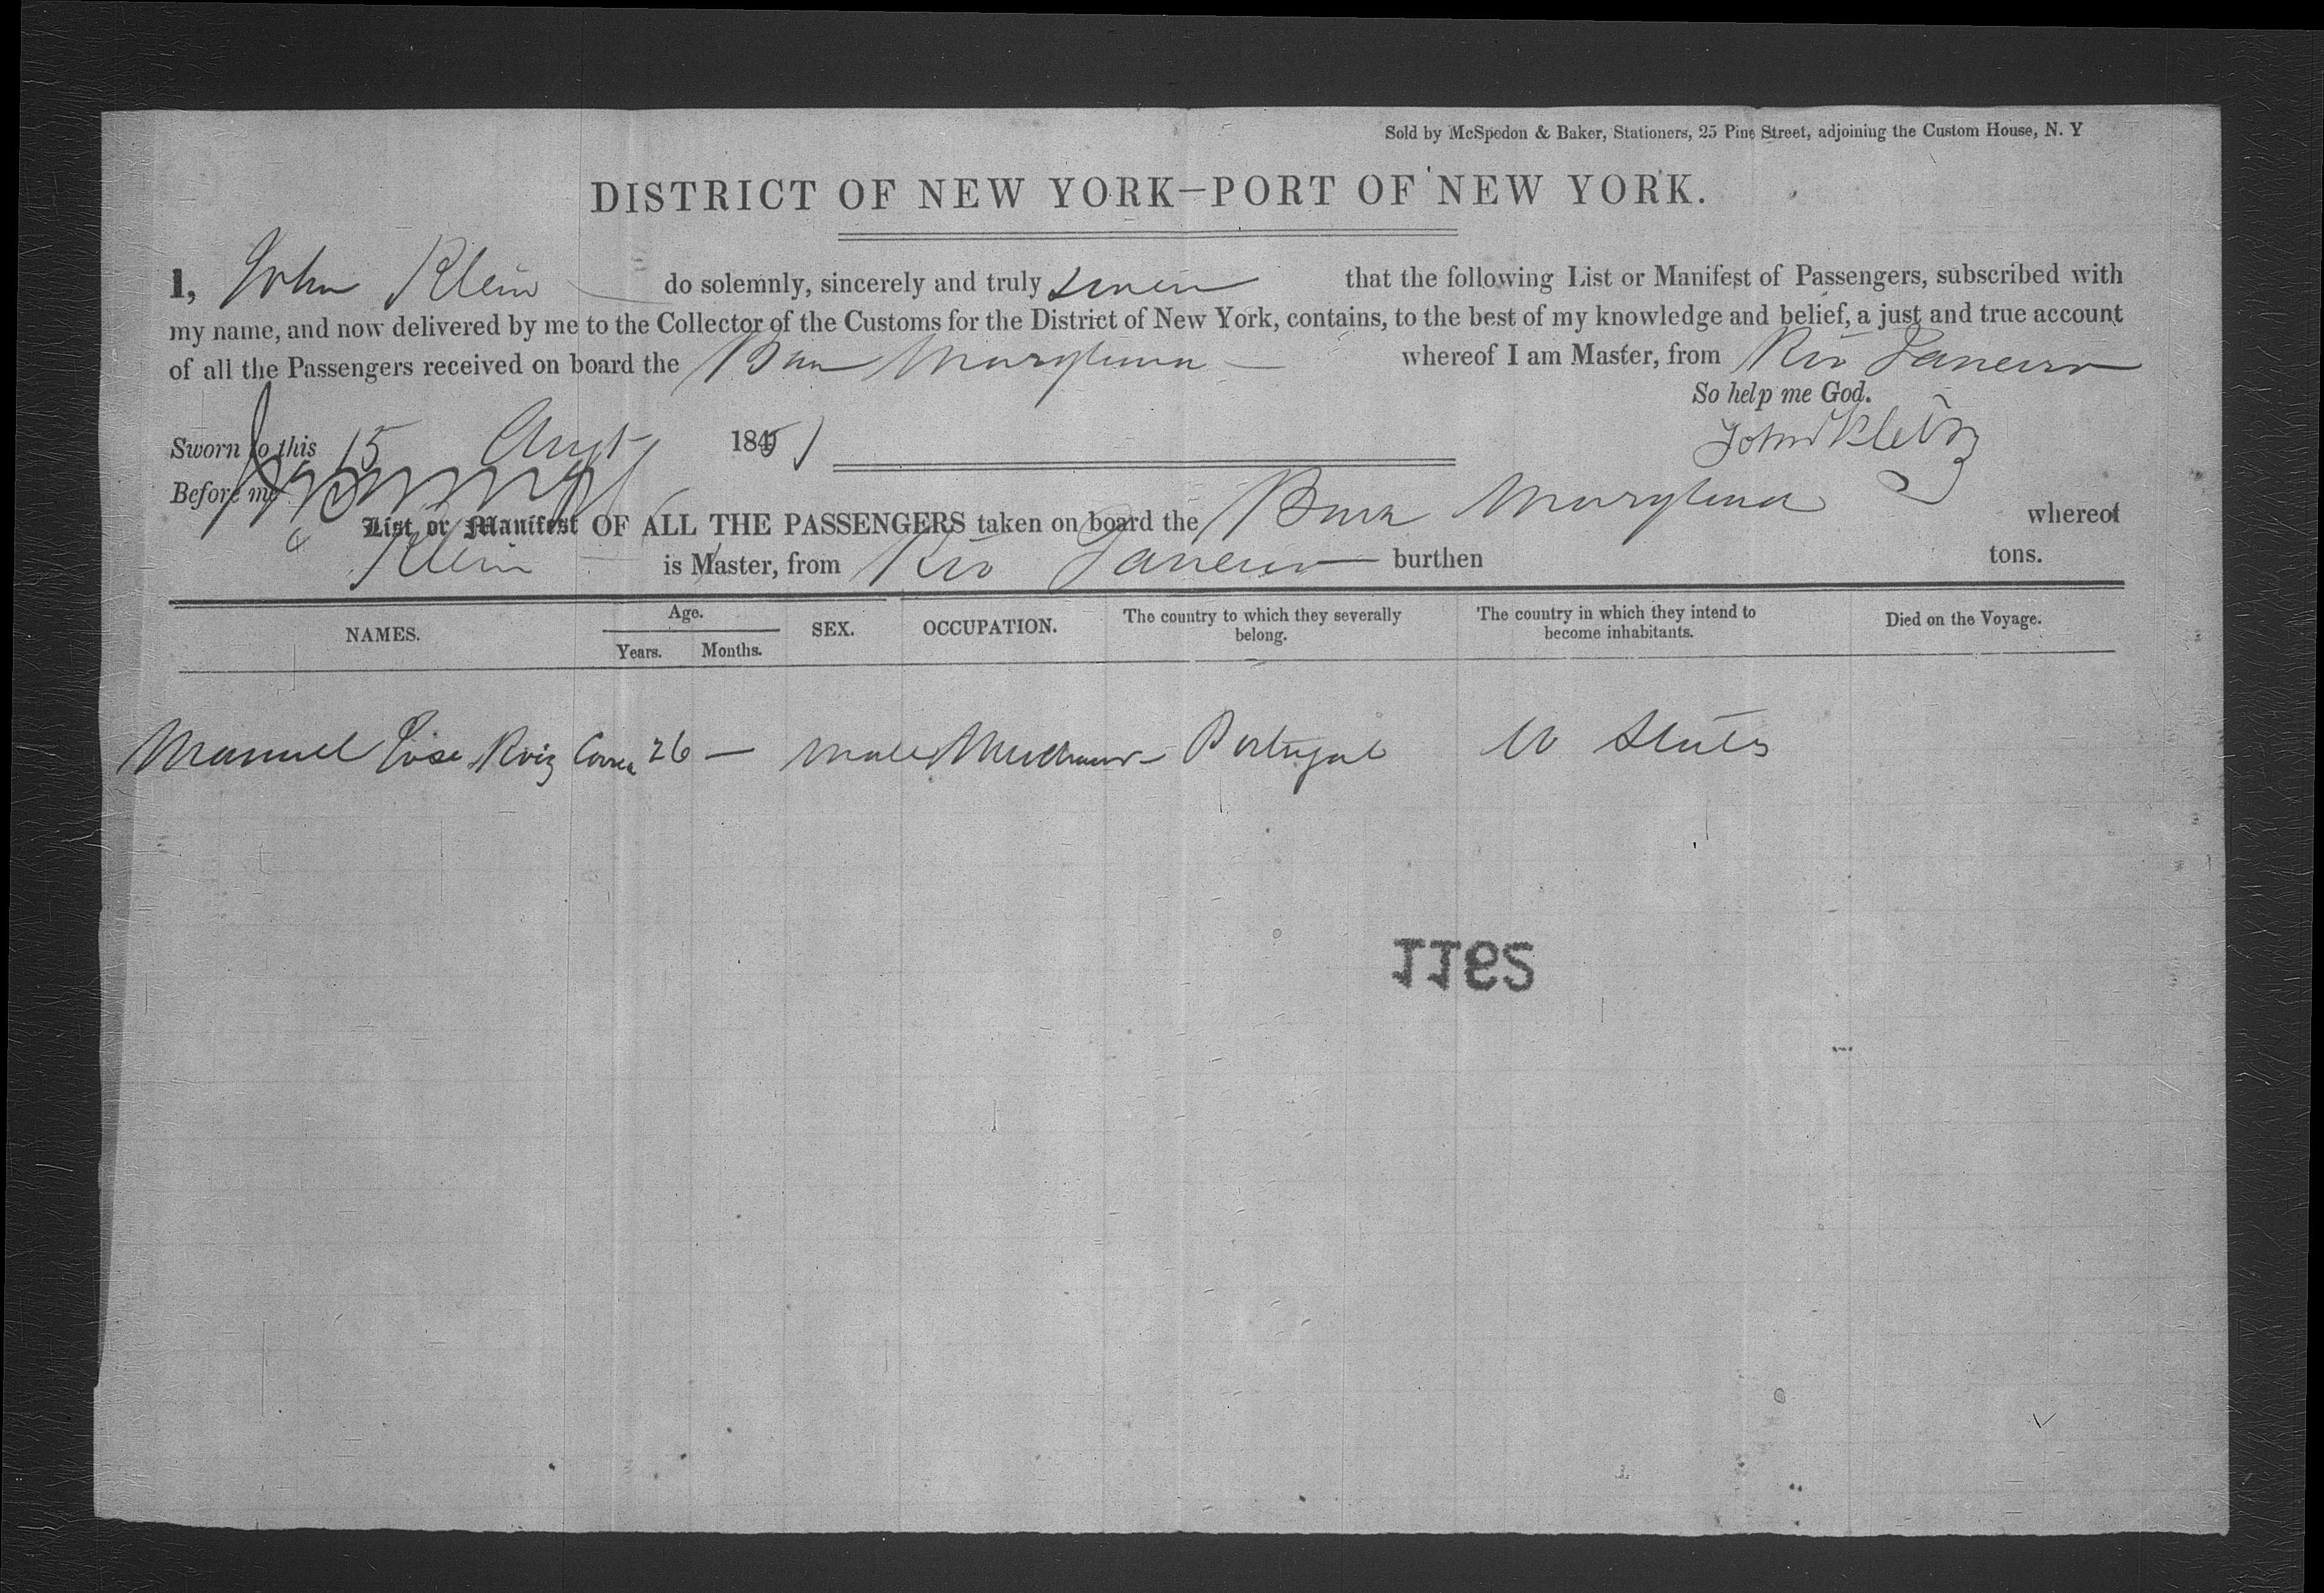 Sold by McSpedon & Baker, Stationers, 25 Pine Street, adjoining the Custom House, N. Y
DISTRICT OF NEW YORK—PORT OF NEW YORK.
I, John Klein do solemnly, sincerely and truly swear that the following List or Manifest of Passengers, subscribed with
my name, and now delivered by me to the Collector of the Customs for the District of New York, contains, to the best of my knowledge and belief, a just and true account
of all the Passengers received on board the Bark whereof I am Master, from Rio Janeiro
So help me God.
Sworn to this 15 Augt 1851
John Klein
Before me
List or Manifest OF ALL THE PASSENGERS taken on board the Bark whereof
Klein is Master, from Rio Janeiro burthen tons.
NAMES. Age. Years. Months. SEX. OCCUPATION. The country to which they severally belong. The country in which they intend to become inhabitants. Died on the Voyage.
Manuel Jose Roiz Correa 26 — male Merchant Portugal U States